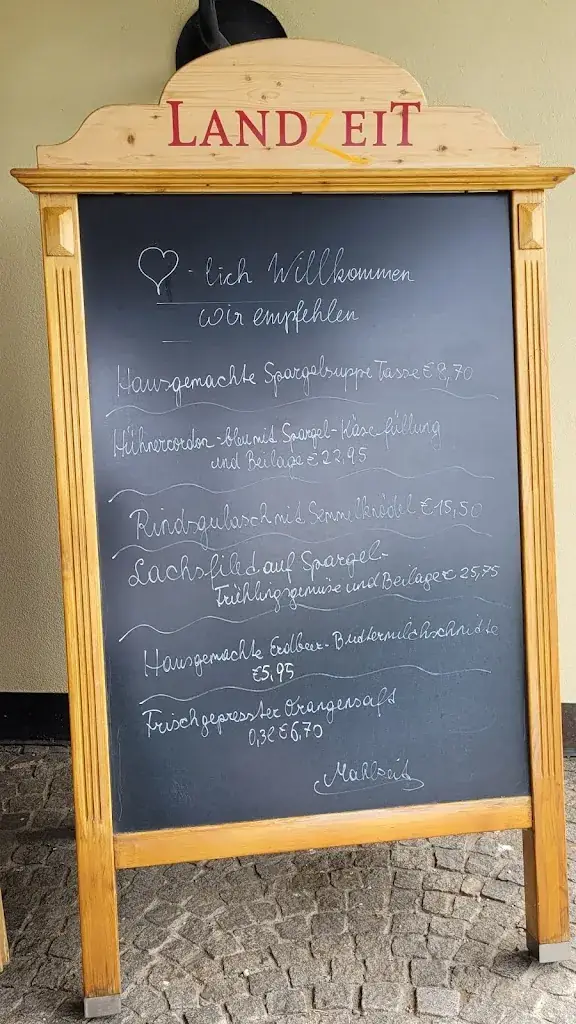 LANDZEIT
♡-lich Willkommen
wir empfehlen
Hausgemachte Spargelsuppe Tasse € 8,70
Hühnercordon-bleu mit Spargel-Käsefüllung
und Beilage € 22,95
Rindsgulasch mit Semmelknödel € 15,50
Lachsfilet auf Spargel-
Frühlingsgemüse und Beilage € 25,75
Hausgemachte Erdbeer-Buttermilchschnitte
€ 5,95
Frischgepresster Orangensaft
0,3l € 6,70
Mahlzeit